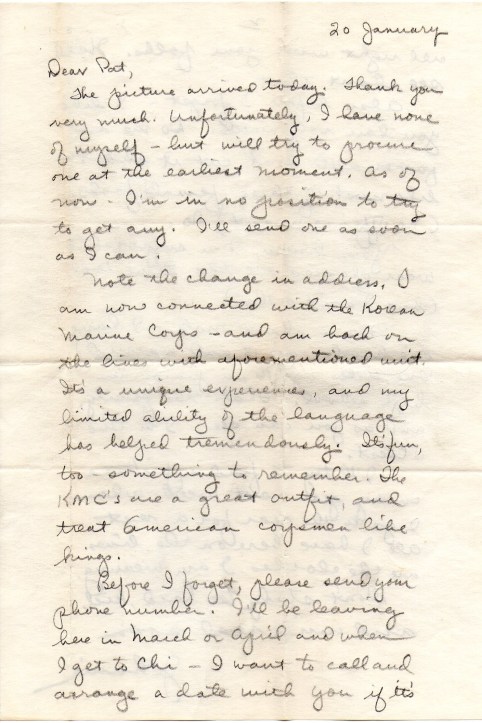 20 January
Dear Pat,
The picture arrived today. Thank you
very much. Unfortunately, I have none
of myself - but will try to procure
one at the earliest moment. As of
now - I'm in no position to try
to get any. I'll send one as soon
as I can.
Note the change in address. I
am now connected with the Korean
Marine Corps - and am back on
the lines with aforementioned unit.
It's a unique experience, and my
limited ability of the language
has helped tremendously. It's fun,
too - something to remember. The
KMC's are a great outfit, and
treat American corpsmen like
kings.
Before I forget, please send your
phone number. I'll be leaving
here in March or April and when
I get to Chi - I want to call and
arrange a date with you if it's